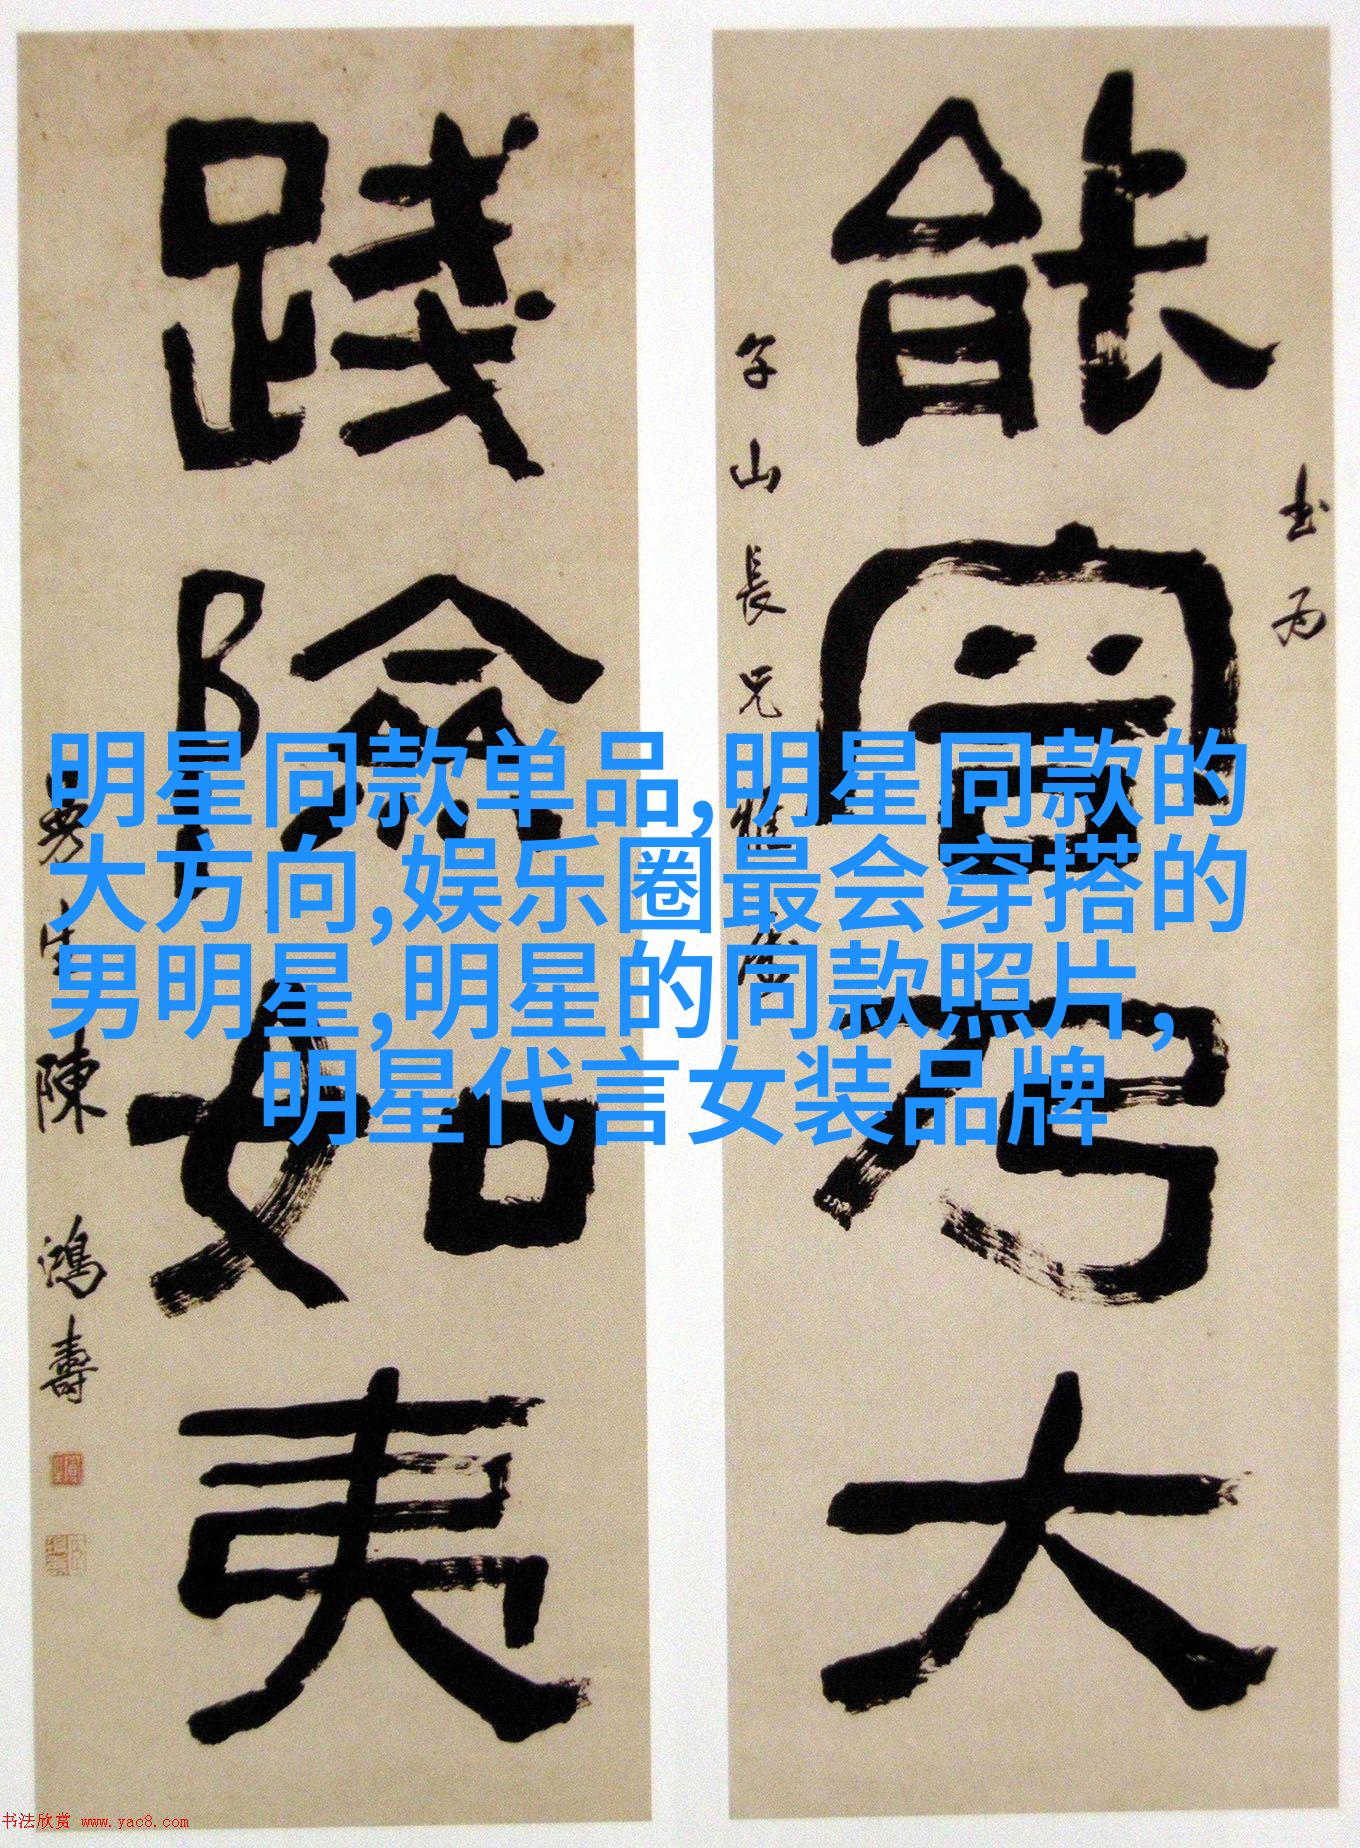 能容乃大
书为
子山長兄
雅属
践險如夷
曼生陳鴻壽
明星同款单品,明星同款的
大方向,娱乐圈最会穿搭的
男明星,明星的同款照片,
明星代言女装品牌
书法欣赏 www.yac8.com